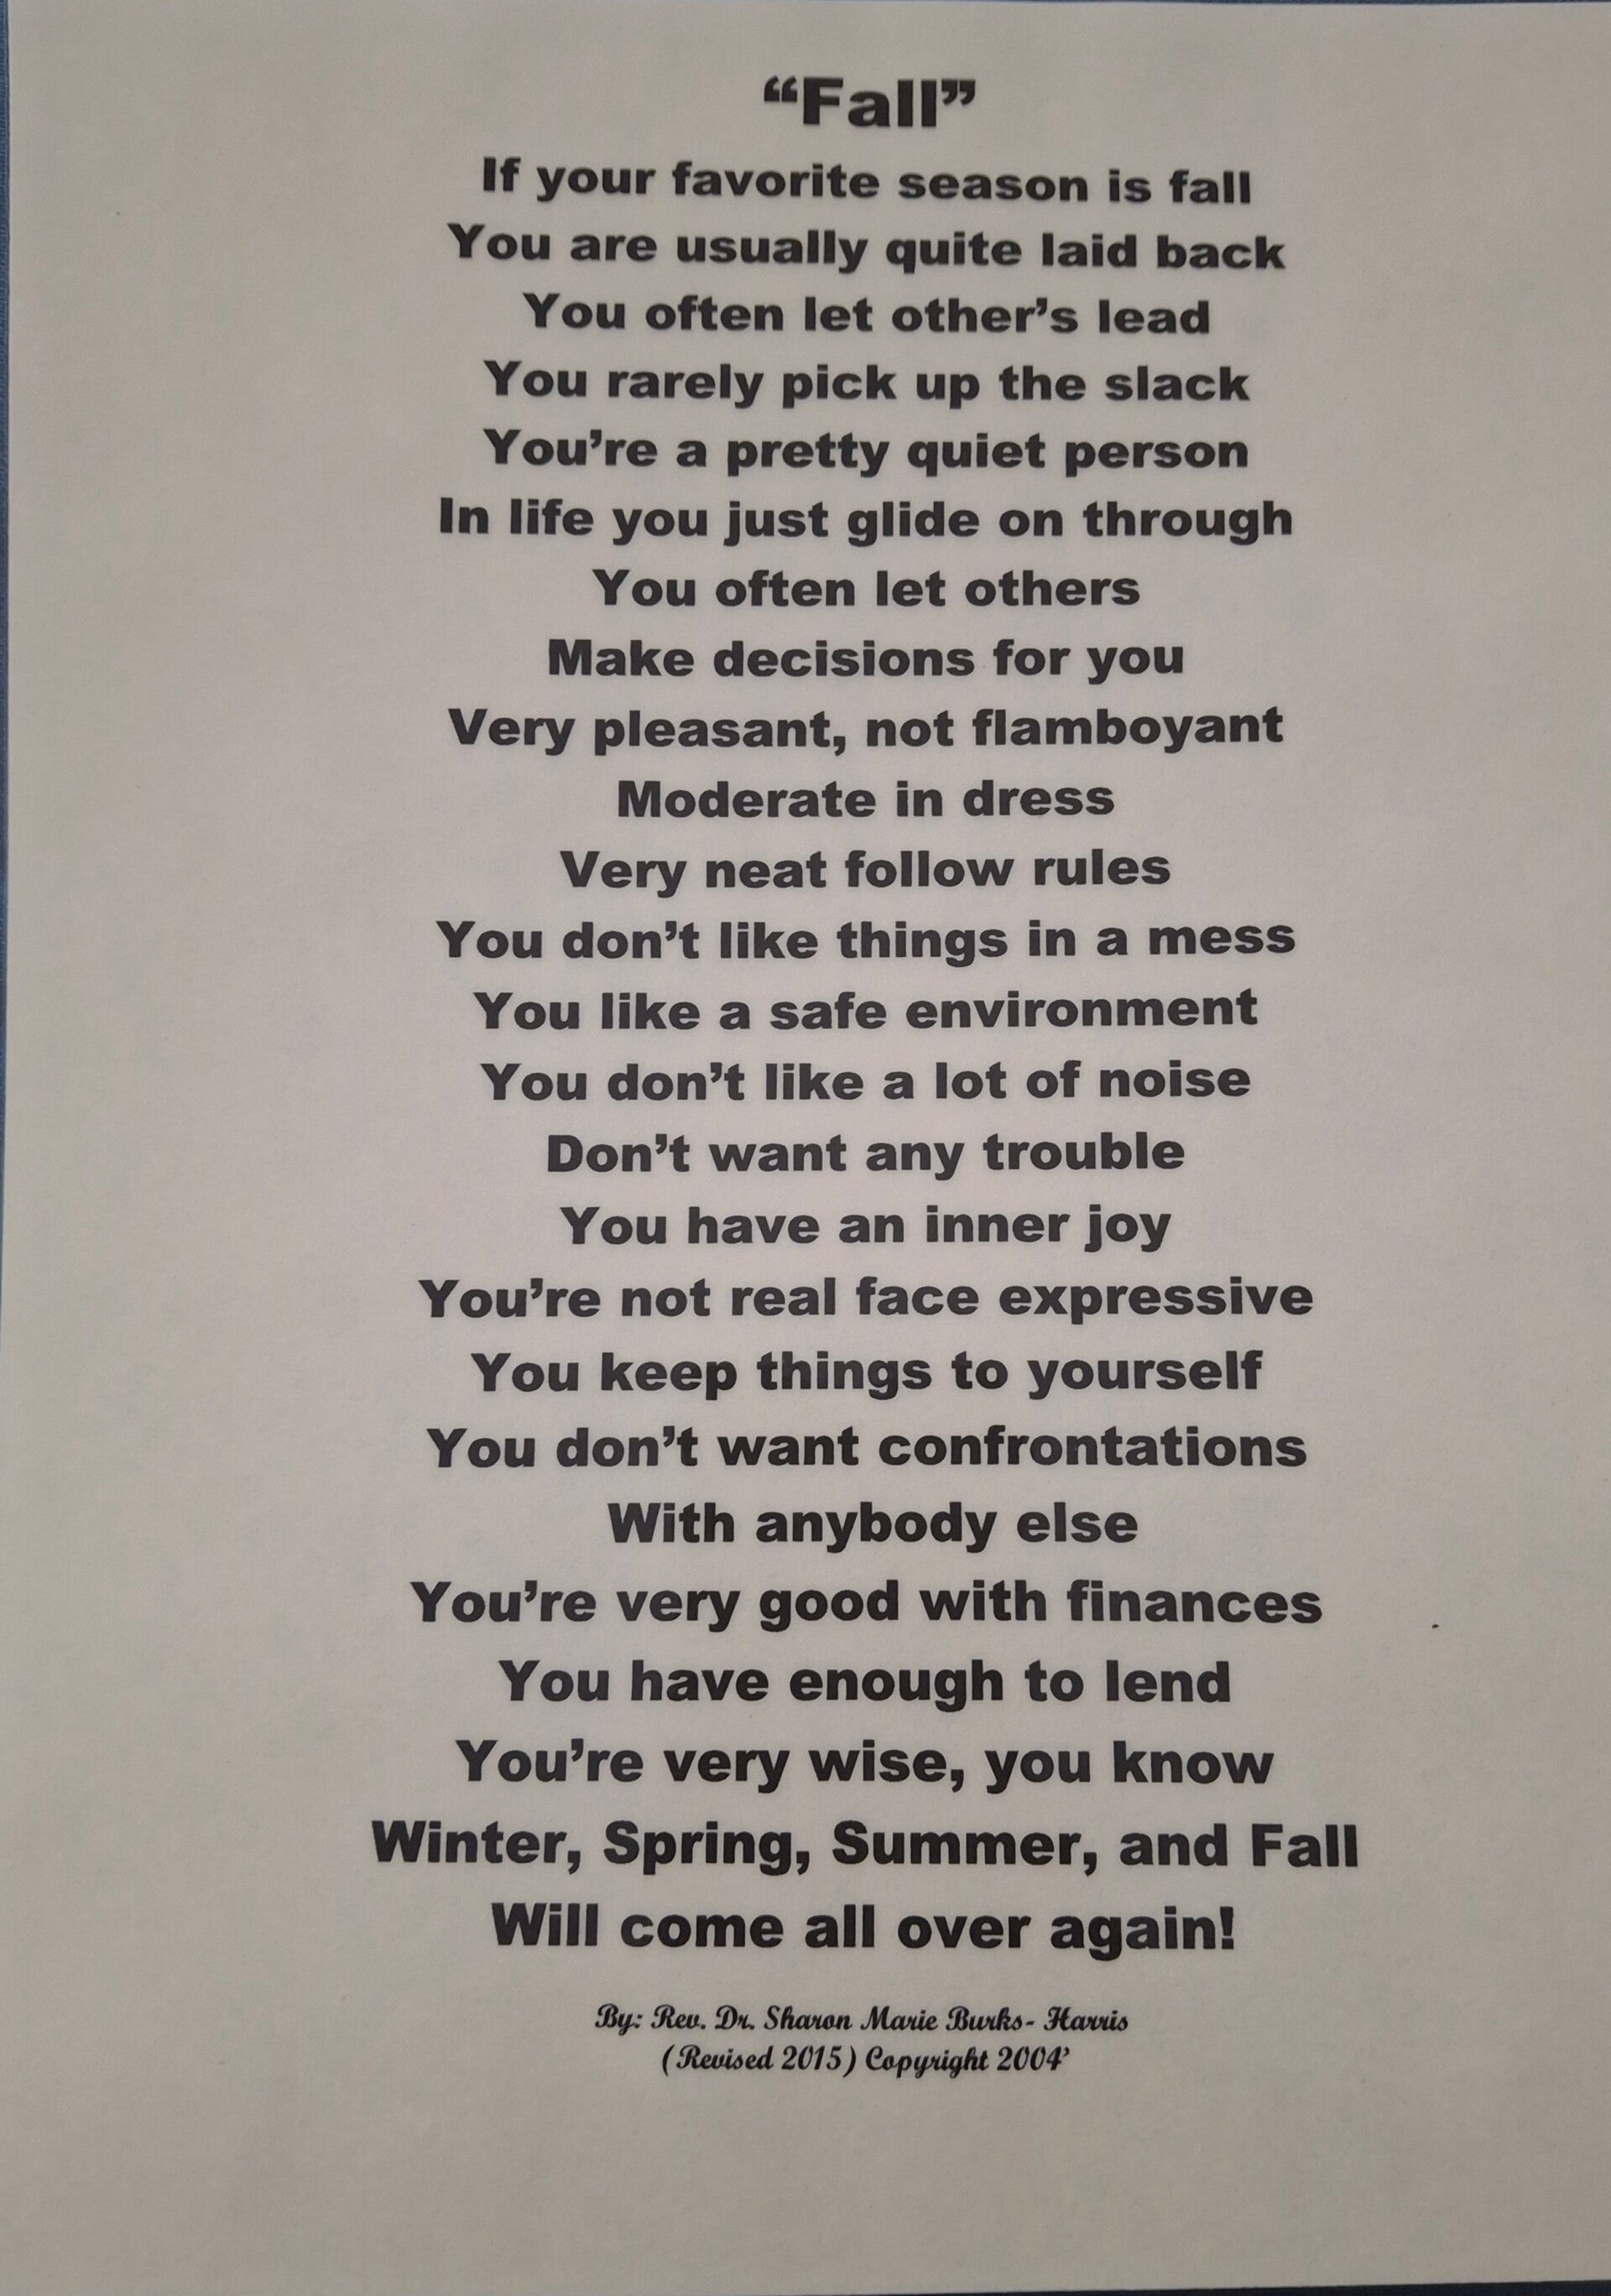 “Fall”
If your favorite season is fall
You are usually quite laid back
You often let other’s lead
You rarely pick up the slack
You’re a pretty quiet person
In life you just glide on through
You often let others
Make decisions for you
Very pleasant, not flamboyant
Moderate in dress
Very neat follow rules
You don’t like things in a mess
You like a safe environment
You don’t like a lot of noise
Don’t want any trouble
You have an inner joy
You’re not real face expressive
You keep things to yourself
You don’t want confrontations
With anybody else
You’re very good with finances
You have enough to lend
You’re very wise, you know
Winter, Spring, Summer, and Fall
Will come all over again!
By: Rev. Dr. Sharon Marie Burks- Harris
(Revised 2015) Copyright 2004’